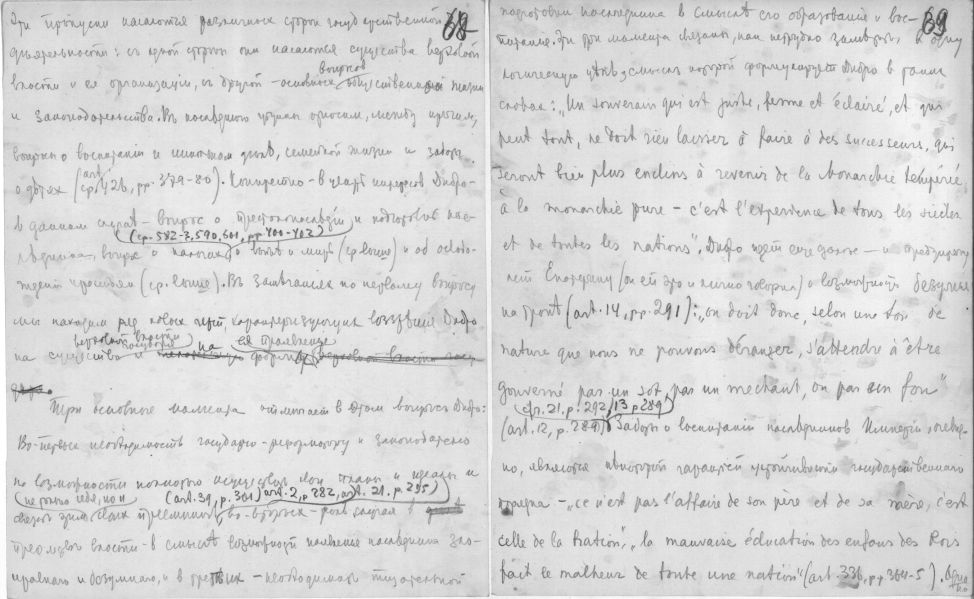 68
Эти пропуски касаются различных сторон государственной
деятельности: с одной стороны они касаются существа верховной
власти и ее организации, с другой – основных вопросов общественной жизни
и законодательства. В последнюю группу относим, между прочим,
вопросы о воспитании и школьном деле, семейной жизни и заботы
о детях (ср. art. 426, pp. 379-80). Конкретно – в центре интересов Дидро
в данном случае – вопрос о престолонаследии и подготовке нас-
(ср. 582-3, 590, 601, pp 400-403)
ледника, вопрос о налогах, о войне и мире (ср. выше) и об освобо-
ждении крестьян (ср. выше). В замечаниях по первому вопросу
мы находим ряд новых черт, характеризующих воззрения Дидро
верховной власти на ее проявление
на существо и формы
Три основные момента отмечает в этом вопросе Дидро:
Во-первых необходимость государю-реформатору и законодателю
по возможности полного осуществить свои планы и идеалы и
(не только себя, но и (art. 39, p. 301) art. 2, p 282, art. 21. p 295)
связать ими своих преемников, во-вторых – роль случая в
преемстве власти – в смысле возможности появления наследника зло-
нравного и безумного, и в третьих – необходимость тщательной
69
подготовки наследника в смысле его образования и вос-
питания. Эти три момента связаны, как нетрудно заметить, в одну
логическую цепь, смысл которой формулирует Дидро в таких
словах: „Un souverain qui est juste, ferme et éclairé, et qui
peut tout, ne doit rien laisser à faire à des successeurs, qui
seront bien plus enclins à revenir de la Monarchie tempérée,
à la monarchie pure – c'est l'expérience de tous les siècles
et de toutes les nations". Дидро идет еще далее – и предупреж-
дает Екатерину (он ей это и лично говорил) о возможности безумца
на троне (art. 14, pp. 291): „on doit donc, selon une loi de
nature que nous ne pouvons déranger, s'attendre à être
gouverné par un sot, par un méchant, ou par un fou"
cfr. 21, p. 292, 13 p 289
(art. 12, p. 289) Заботы о воспитании наследников Империи, очевид-
но, являются некоторой гарантией устойчивости государственного
порядка – „ce n'est pas l'affaire de son père et de sa mère, c'est
celle de la Nation", „la mauvaise éducation des enfans des Rois
fait le malheur de toute une nation" (art. 336, pp 364-5). Одна-
ко